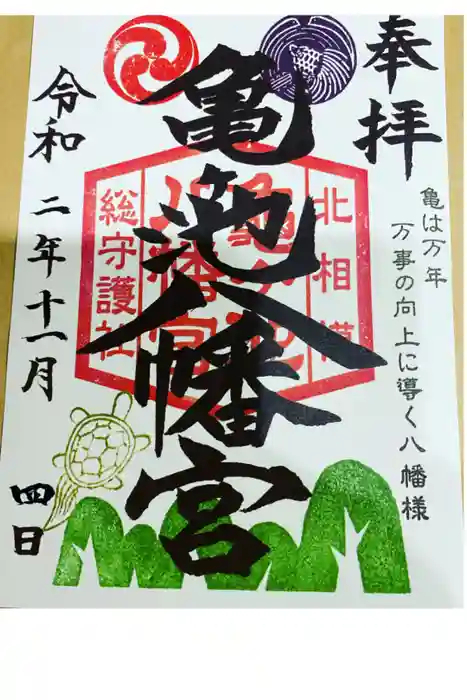 奉拝
亀は万年
万事の向上に導く八幡様
北相模
亀ヶ池
八幡宮
総守護社
亀池八幡宮
令和二年十一月
四日